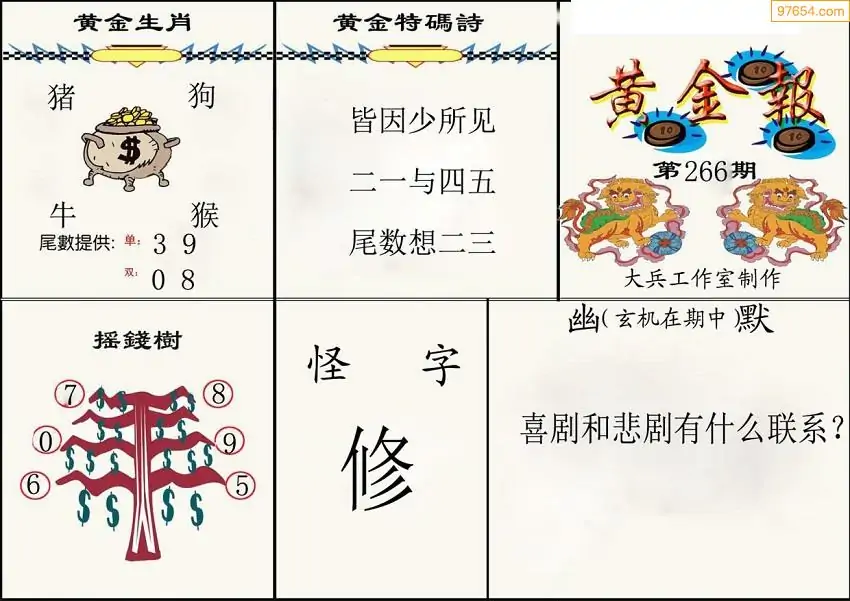 97654.com
黄金生肖
猪 狗
$
牛 猴
尾數提供: 单: 3 9
双: 0 8
黄金特碼詩
皆因少所见
二一与四五
尾数想二三
黄金報
10
10
10
第266期
大兵工作室制作
摇錢樹
7 8
0 9
6 5
怪 字
修
幽(玄机在期中)默
喜剧和悲剧有什么联系?